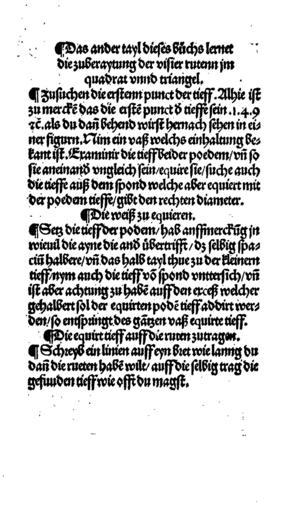 ¶ Das ander tayl dieses büchs lernet
die zuberaytung der visier rutenn jm
quadrat vnnd triangel.
¶ Zusuchen die erstenn punct der tieff. Alhie ist
zu merckē das die erstē punct d tieffe sein .1.4.9
ꝛc. als du dañ behend wirst hernach sehen in ei-
ner figurn. Nim ein vaß welchs einhaltung be-
kant ist. Examinir die tieff beider poedem / vñ so
sie aneinand vngleich sein / equire sie / suche auch
die tieffe auß dem spond welche aber equiert mit
der poedem tieffe / gibt den rechten diameter.
¶ Die weiß zu equieren.
¶ Setz die tieff der podem / hab auffmerckūg in
wieuil die ayne die and übertrifft / dz selbig spa-
ciū halbere / vñ das halb tayl thue zu der kleinern
tieff / nym auch die tieff vō spond vnttersich / vñ
ist aber achtung zu habē auff den exceß welcher
gehalbert sol der equirten podē tieff addirt wer-
den / so entspringt des gātzen vaß equirte tieff.
¶ Die equirt tieff auff die ruten zutragen.
¶ Schreyb ein linien auff eyn bret wie lanng du
dañ die rueten habē wilt / auff die selbig trag die
gefunden tieff wie offt du magst.